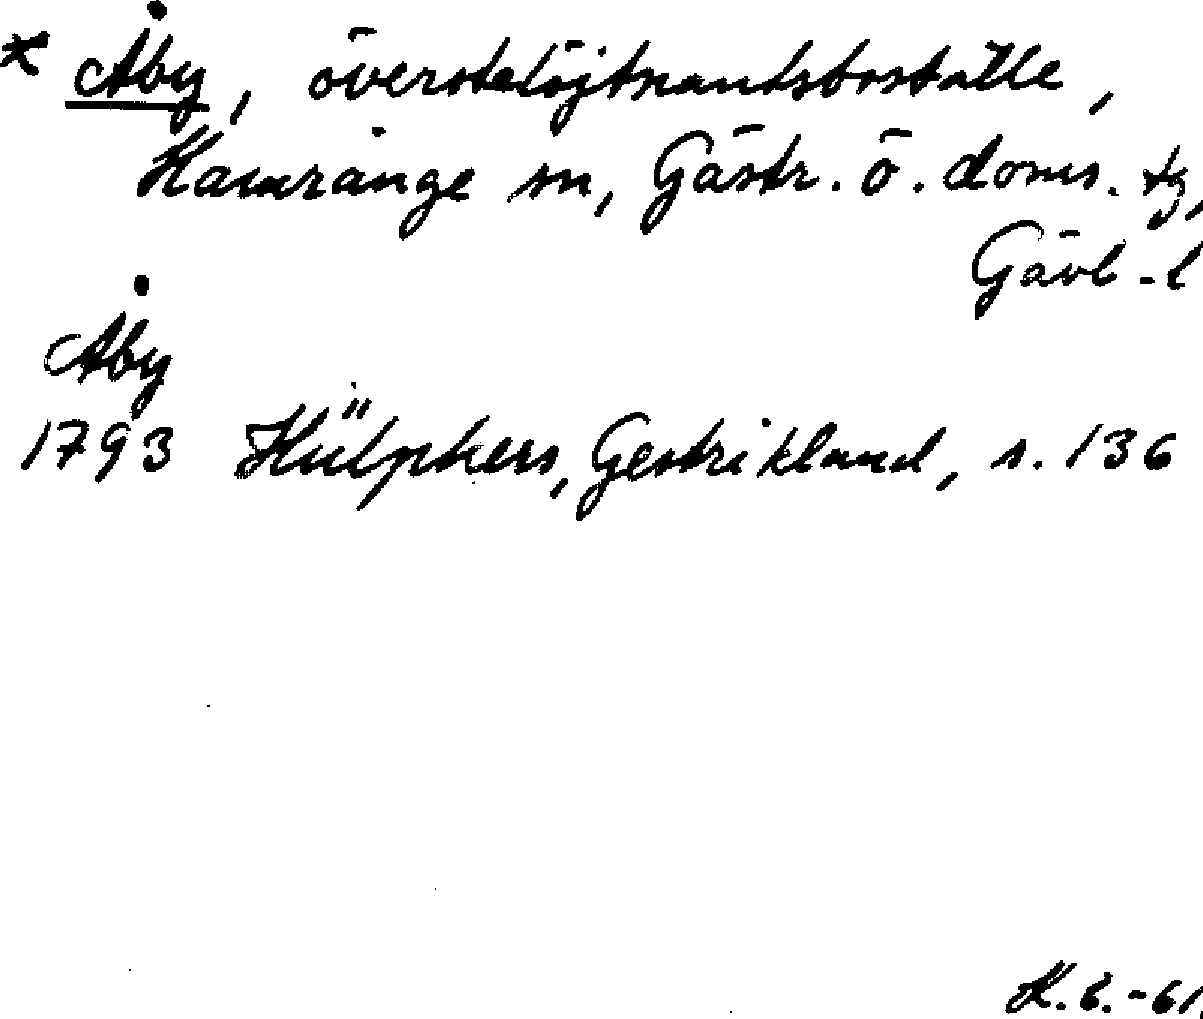 * Åby, överstelöjtnantsboställe,
Hamrånge sn, Gästr. ö. doms. tg,
Gävl-l
Åby
1793 Hülphers, Gestrikland, s. 136